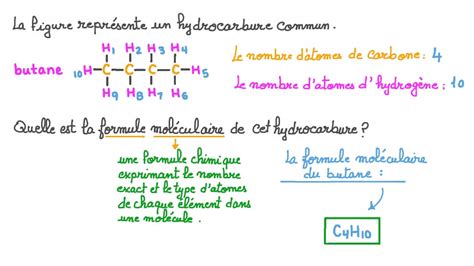 La figure représente un hydrocarbure commun.
H1 H2 H3 H4
butane 10H-C-C-C-C-H5
H9 H8 H7 H6
Le nombre d'atomes de carbone: 4
Le nombre d'atomes d'hydrogène: 10
Quelle est la formule moléculaire de cet hydrocarbure?
une formule chimique
exprimant le nombre
exact et le type d'atomes
de chaque élément dans
une molécule.
La formule moléculaire
du butane:
C4H10